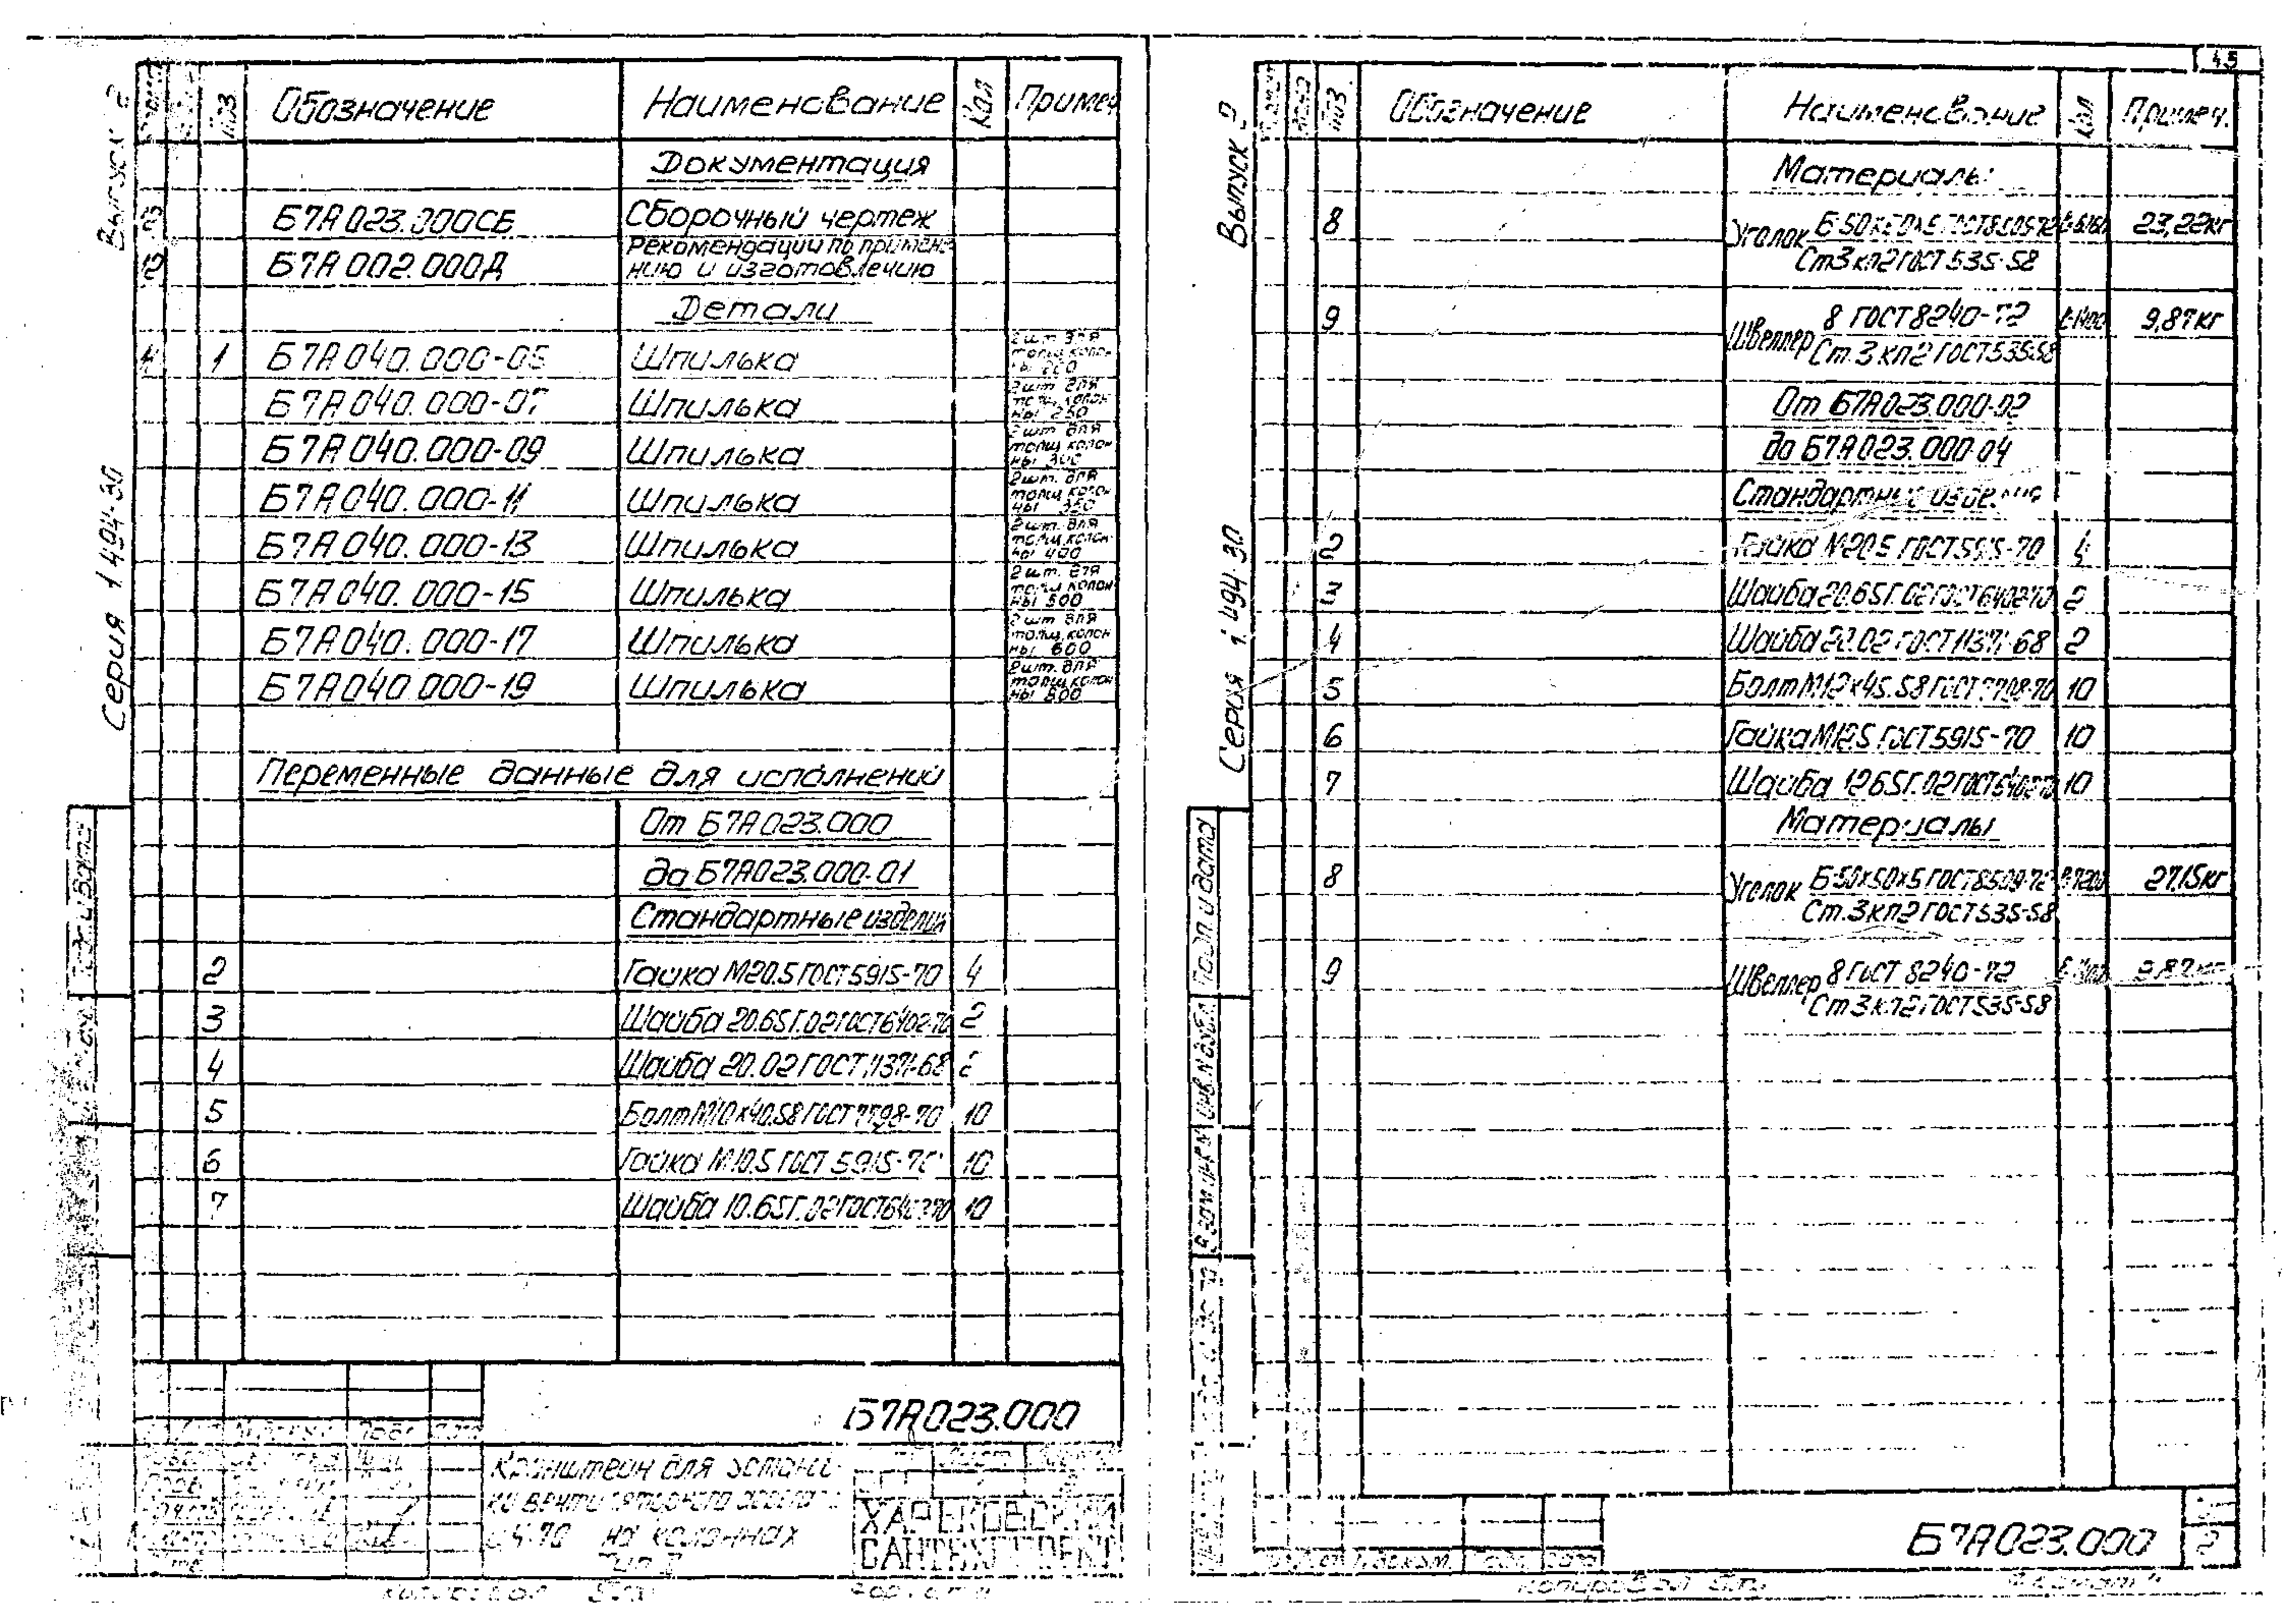 Выпуск 2
Серия 1.494-30
Поз Обозначение Наименование Кол Примеч
Документация
Б7А023.000СБ Сборочный чертеж
12 Б7А002.000Д Рекомендации по примене-
нию и изготовлению
Детали
11 1 Б7А040.000-05 Шпилька 2 шт для
толщ. колон-
ны 200
Б7А040.000-07 Шпилька 2 шт для
толщ. колон
ны 250
Б7А040.000-09 Шпилька 2 шт для
толщ. колон
ны 300
Б7А040.000-11 Шпилька 2 шт. для
толщ. колон
ны 350
Б7А040.000-13 Шпилька 2 шт. для
толщ. колон
ны 400
Б7А040.000-15 Шпилька 2 шт. для
толщ колон
ны 500
Б7А040.000-17 Шпилька 2 шт для
толщ. колон
ны 600
Б7А040.000-19 Шпилька 2 шт. для
толщ. колон
ны 800
Переменные данные для исполнений
От Б7А023.000
до Б7А023.000-01
Стандартные изделия
2 Гайка М20.5 ГОСТ 5915-70 4
3 Шайба 20.65Г.02 ГОСТ 6402-70 2
4 Шайба 20.02 ГОСТ 11371-68 2
5 Болт М10х40.58 ГОСТ 7798-70 10
6 Гайка М10.5 ГОСТ 5915-70 10
7 Шайба 10.65Г.02 ГОСТ 6402-70 10
Б7А023.000
Кронштейн для установ-
ки вентиляторного агрегата
Ц4-70 на колоннах
Тип
ХАРЬКОВСКИЙ
САНТЕХПРОЕКТ
Копировал
Формат
45
Выпуск 2
Серия 1.494 30
Подп. и дата
Инв. N дубл.
Взам. инв. N
Поз. Обозначение Наименование Кол Примеч.
Материалы:
8 Уголок Б-50х50х5 ГОСТ 8509-72 23,22кг
Ст3кп2 ГОСТ 535-58
9 Швеллер 8 ГОСТ 8240-72 ℓ=1400 9,87кг
Ст.3кп2 ГОСТ 535-58
От Б7А023.000-02
до Б7А023.000-04
Стандартные изделия
2 Гайка М20.5 ГОСТ 5915-70 4
3 Шайба 20.65Г.02 ГОСТ 6402-70 2
4 Шайба 20.02 ГОСТ 11371-68 2
5 Болт М12х45.58 ГОСТ 7798-70 10
6 Гайка М12.5 ГОСТ 5915-70 10
7 Шайба 12.65Г.02 ГОСТ 6402-70 10
Материалы
8 Уголок Б-50х50х5 ГОСТ 8509-72 ℓ=7200 27,15кг
Ст.3кп2 ГОСТ 535-58
9 Швеллер 8 ГОСТ 8240-72 ℓ=1400 9,87кг
Ст3кп2 ГОСТ 535-58
Б7А023.000
2
Копировал
Формат